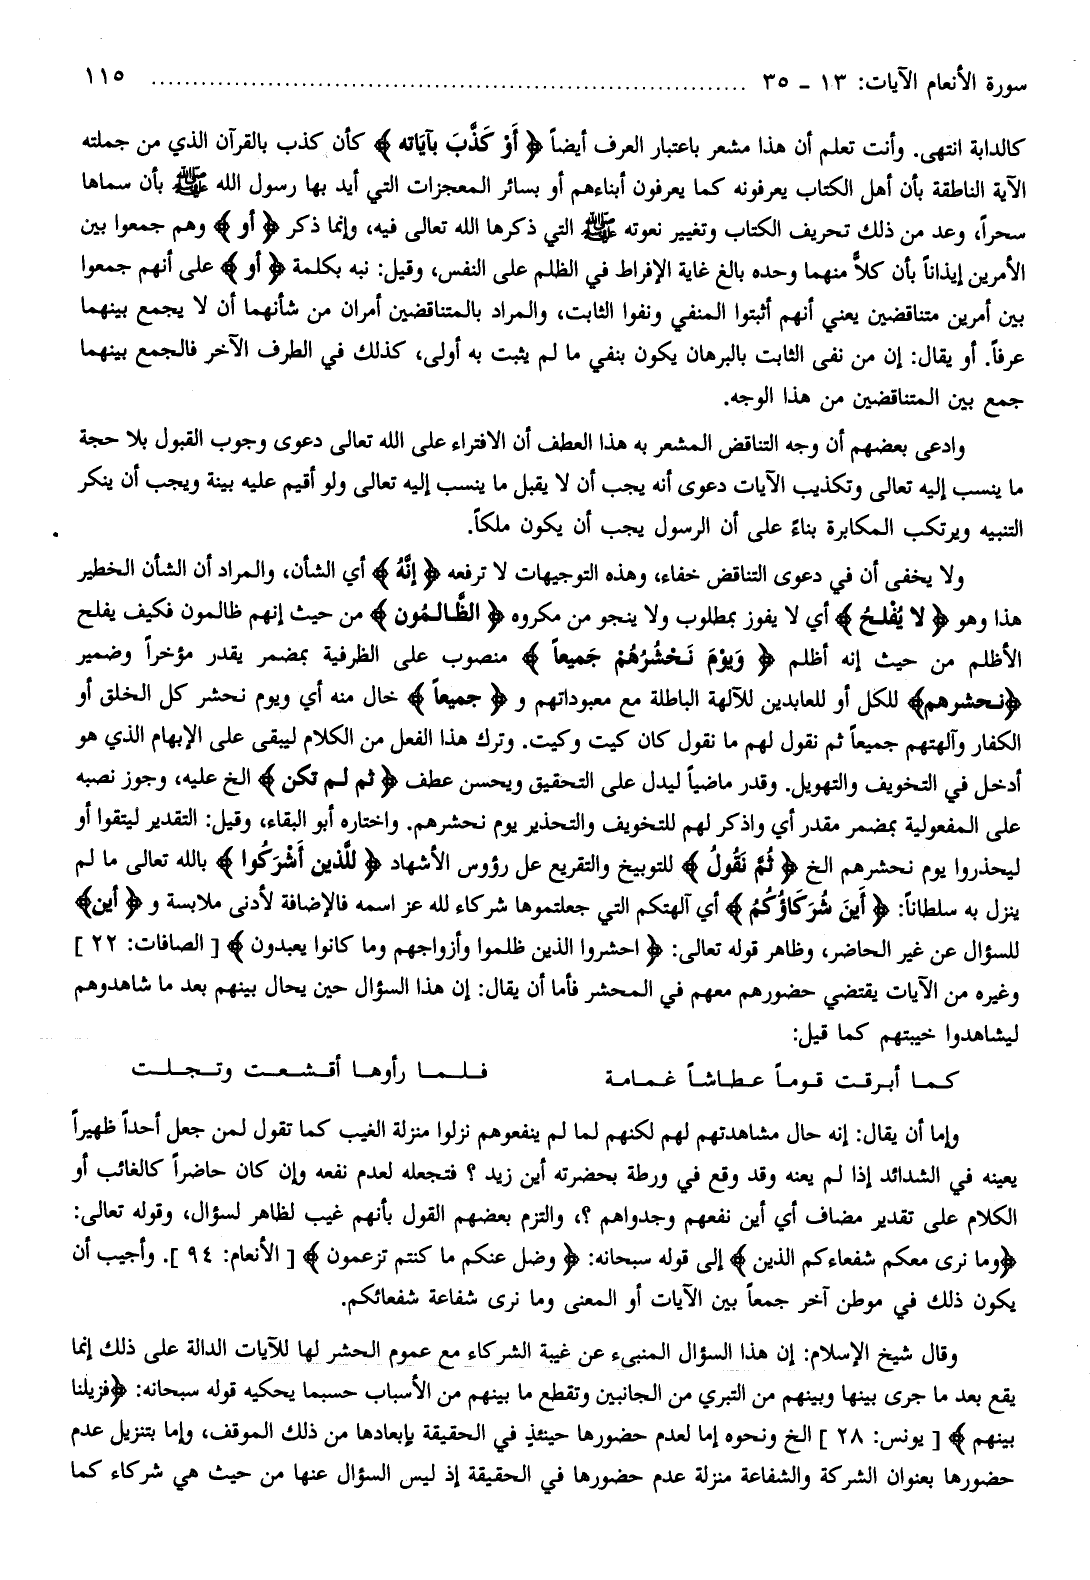 سورة الأنعام الآيات: ١٣ - ٣٥ ........................................................................ ١١٥
كالدابة انتهى. وأنت تعلم أن هذا مشعر باعتبار العرف أيضاً ﴿ أَوْ كَذَّبَ بآيَاته ﴾ كأن كذب بالقرآن الذي من جملته
الآية الناطقة بأن أهل الكتاب يعرفونه كما يعرفون أبناءهم أو بسائر المعجزات التي أيد بها رسول الله ﷺ بأن سماها
سحراً، وعد من ذلك تحريف الكتاب وتغيير نعوته ﷺ التي ذكرها الله تعالى فيه، وإنما ذكر ﴿ أو ﴾ وهم جمعوا بين
الأمرين إيذاناً بأن كلاً منهما وحده بالغ غاية الإفراط في الظلم على النفس، وقيل: نبه بكلمة ﴿ أو ﴾ على أنهم جمعوا
بين أمرين متناقضين يعني أنهم أثبتوا المنفي ونفوا الثابت، والمراد بالمتناقضين أمران من شأنهما أن لا يجمع بينهما
عرفاً. أو يقال: إن من نفى الثابت بالبرهان يكون بنفي ما لم يثبت به أولى، كذلك في الطرف الآخر فالجمع بينهما
جمع بين المتناقضين من هذا الوجه.
وادعى بعضهم أن وجه التناقض المشعر به هذا العطف أن الافتراء على الله تعالى دعوى وجوب القبول بلا حجة
ما ينسب إليه تعالى وتكذيب الآيات دعوى أنه يجب أن لا يقبل ما ينسب إليه تعالى ولو أقيم عليه بينة ويجب أن ينكر
التنبيه ويرتكب المكابرة بناءً على أن الرسول يجب أن يكون ملكاً.
ولا يخفى أن في دعوى التناقض خفاء، وهذه التوجيهات لا ترفعه ﴿ إنَّهُ ﴾ أي الشأن، والمراد أن الشأن الخطير
هذا وهو ﴿ لا يُفْلحُ ﴾ أي لا يفوز بمطلوب ولا ينجو من مكروه ﴿ الظَّالمُون ﴾ من حيث إنهم ظالمون فكيف يفلح
الأظلم من حيث إنه أظلم ﴿ وَيوْمَ نَحْشُرُهُمْ جَميعاً ﴾ منصوب على الظرفية بمضمر يقدر مؤخراً وضمير
﴿نحشرهم﴾ للكل أو للعابدين للآلهة الباطلة مع معبوداتهم و ﴿ جميعاً ﴾ خال منه أي ويوم نحشر كل الخلق أو
الكفار وآلهتهم جميعاً ثم نقول لهم ما نقول كان كيت وكيت. وترك هذا الفعل من الكلام ليبقى على الإبهام الذي هو
أدخل في التخويف والتهويل. وقدر ماضياً ليدل على التحقيق ويحسن عطف ﴿ ثم لم تكن ﴾ الخ عليه، وجوز نصبه
على المفعولية بمضمر مقدر أي واذكر لهم للتخويف والتحذير يوم نحشرهم. واختاره أبو البقاء، وقيل: التقدير ليتقوا أو
ليحذروا يوم نحشرهم الخ ﴿ ثُمَّ نَقُولُ ﴾ للتوبيخ والتقريع عل رؤوس الأشهاد ﴿ للَّذين أَشْرَكُوا ﴾ بالله تعالى ما لم
ينزل به سلطاناً: ﴿ أَينَ شُرَكَاؤُكُمُ ﴾ أي آلهتكم التي جعلتموها شركاء لله عز اسمه فالإضافة لأدنى ملابسة و ﴿ أين﴾
للسؤال عن غير الحاضر، وظاهر قوله تعالى: ﴿ احشروا الذين ظلموا وأزواجهم وما كانوا يعبدون ﴾ [ الصافات: ٢٢ ]
وغيره من الآيات يقتضي حضورهم معهم في المحشر فأما أن يقال: إن هذا السؤال حين يحال بينهم بعد ما شاهدوهم
ليشاهدوا خيبتهم كما قيل:
كما أبرقت قوماً عطاشاً غمامة فلما رأوها أقشعت وتجلت
وإما أن يقال: إنه حال مشاهدتهم لهم لكنهم لما لم ينفعوهم نزلوا منزلة الغيب كما تقول لمن جعل أحداً ظهيراً
يعينه في الشدائد إذا لم يعنه وقد وقع في ورطة بحضرته أين زيد ؟ فتجعله لعدم نفعه وإن كان حاضراً كالغائب أو
الكلام على تقدير مضاف أي أين نفعهم وجدواهم ؟، والتزم بعضهم القول بأنهم غيب لظاهر لسؤال، وقوله تعالى:
﴿وما نرى معكم شفعاءكم الذين ﴾ إلى قوله سبحانه: ﴿ وضل عنكم ما كنتم تزعمون ﴾ [ الأنعام: ٩٤ ]. وأجيب أن
يكون ذلك في موطن آخر جمعاً بين الآيات أو المعنى وما نرى شفاعة شفعائكم.
وقال شيخ الإسلام: إن هذا السؤال المنبىء عن غيبة الشركاء مع عموم الحشر لها للآيات الدالة على ذلك إنما
يقع بعد ما جرى بينها وبينهم من التبري من الجانبين وتقطع ما بينهم من الأسباب حسبما يحكيه قوله سبحانه: ﴿فزيلنا
بينهم ﴾ [ يونس: ٢٨ ] الخ ونحوه إما لعدم حضورها حينئذٍ في الحقيقة بإبعادها من ذلك الموقف، وإما بتنزيل عدم
حضورها بعنوان الشركة والشفاعة منزلة عدم حضورها في الحقيقة إذ ليس السؤال عنها من حيث هي شركاء كما